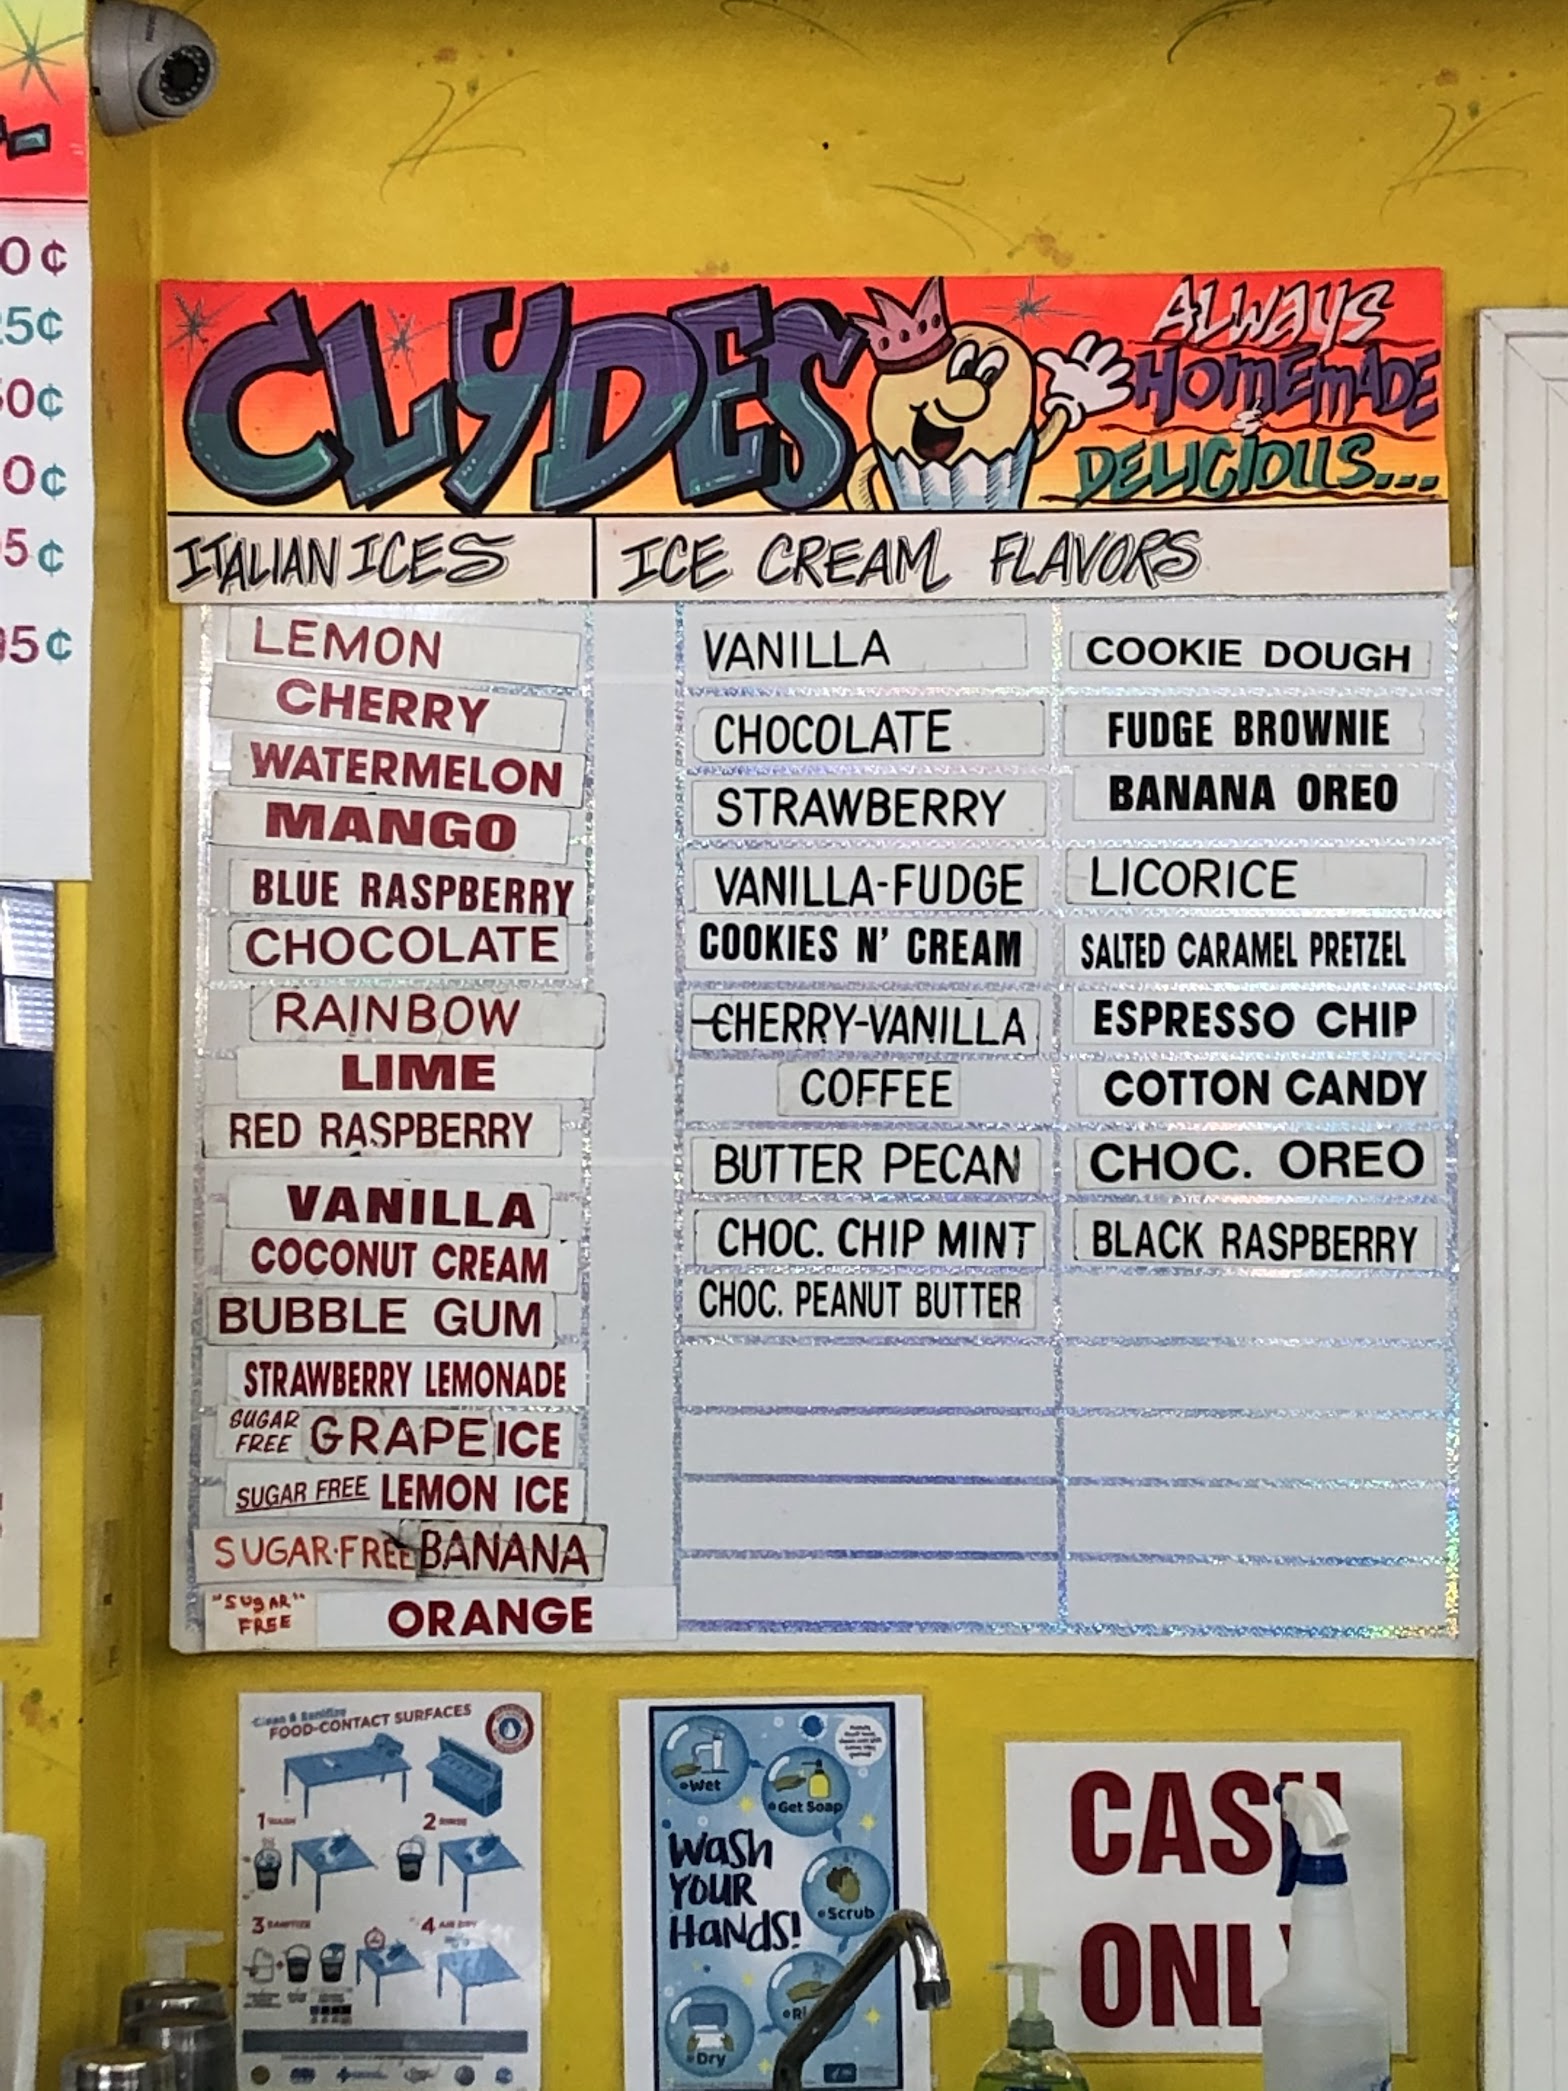 0¢
25¢
50¢
0¢
5¢
95¢
CLYDES
ALWAYS
HOMEMADE
&
DELICIOUS...
ITALIAN ICES
ICE CREAM FLAVORS
LEMON
CHERRY
WATERMELON
MANGO
BLUE RASPBERRY
CHOCOLATE
RAINBOW
LIME
RED RASPBERRY
VANILLA
COCONUT CREAM
BUBBLE GUM
STRAWBERRY LEMONADE
SUGAR FREE GRAPE ICE
SUGAR FREE LEMON ICE
SUGAR·FREE BANANA
"SUGAR" FREE ORANGE
VANILLA
CHOCOLATE
STRAWBERRY
VANILLA-FUDGE
COOKIES N' CREAM
CHERRY-VANILLA
COFFEE
BUTTER PECAN
CHOC. CHIP MINT
CHOC. PEANUT BUTTER
COOKIE DOUGH
FUDGE BROWNIE
BANANA OREO
LICORICE
SALTED CARAMEL PRETZEL
ESPRESSO CHIP
COTTON CANDY
CHOC. OREO
BLACK RASPBERRY
Clean & Sanitize
FOOD-CONTACT SURFACES
1 WASH
2 RINSE
3 SANITIZE
4 AIR DRY
Wet
Get Soap
Wash
YOUR
Hands!
Scrub
Dry
CASH
ONLY